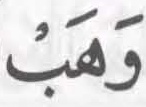 وَهَبْ